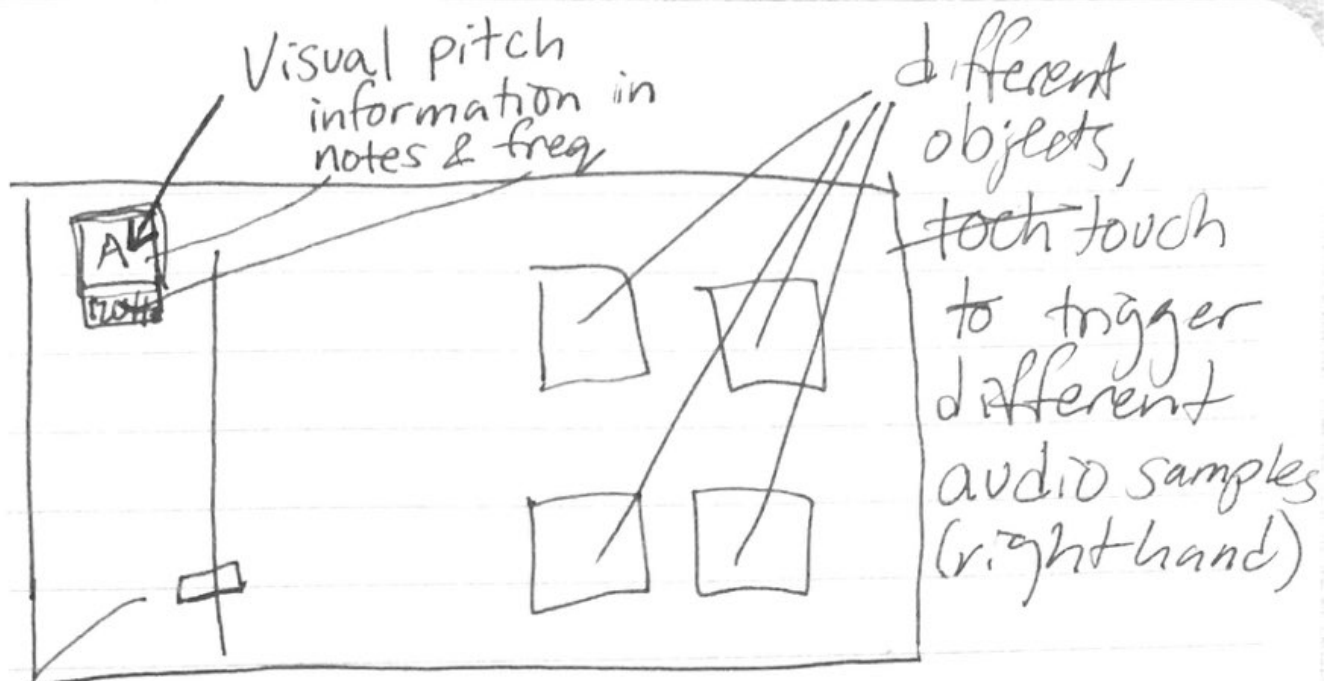 Visual pitch
information in
notes & freq
A
different
objects,
toch touch
to trigger
different
audio samples
(right hand)